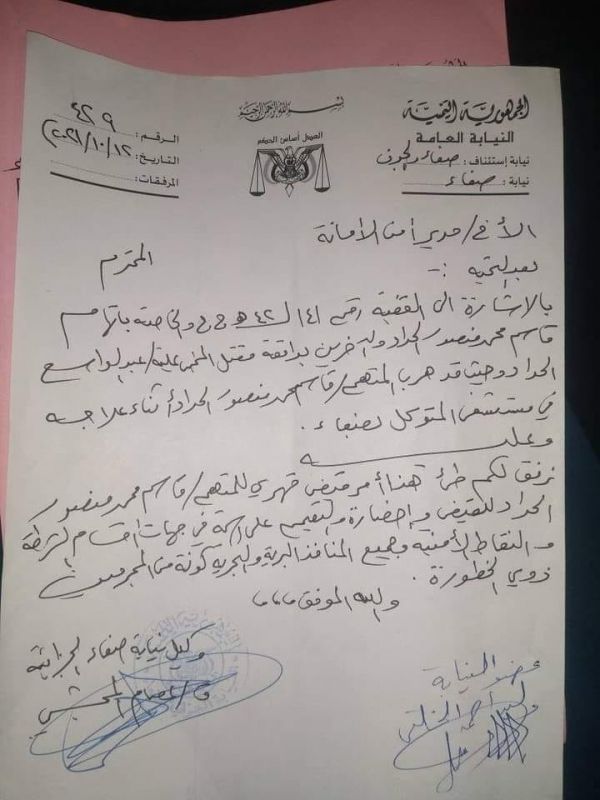 بسم الله الرحمن الرحيم
الجمهورية اليمنية
النيابة العامة
نيابة إستئناف : صنعاء والجوف
نيابة : صنعاء
العدل أساس الحكم
الرقم : ٤٢٩
التاريخ : ٢٠٢١/١٠/١٢
المرفقات :
الأخ/ مدير أمن الأمانة المحترم
بعد التحية :-
بالإشارة الى القضية رقم ١٤١ لـ ٤٢ هـ ج ج والخاصة باتهام
قاسم محمد منصور الحداد وآخرين بواقعة مقتل المجني عليه/ عبدالواسع
الحداد وحيث قد هرب المتهم/ قاسم محمد منصور الحداد أثناء علاجه
في مستشفى المتوكل بصنعاء .
وعليه
نرفق لكم طي هذا أمر قبض قهري للمتهم/ قاسم محمد منصور
الحداد للقبض وإحضاره والتعميم على اسمه في جهات اقسام الشرطة
والنقاط الأمنية وجميع المنافذ البرية والبحرية كونه من المجرمين
ذوي الخطورة .
والله الموفق ،،،،
وكيل نيابة صنعاء الجزائية
عضو النيابة